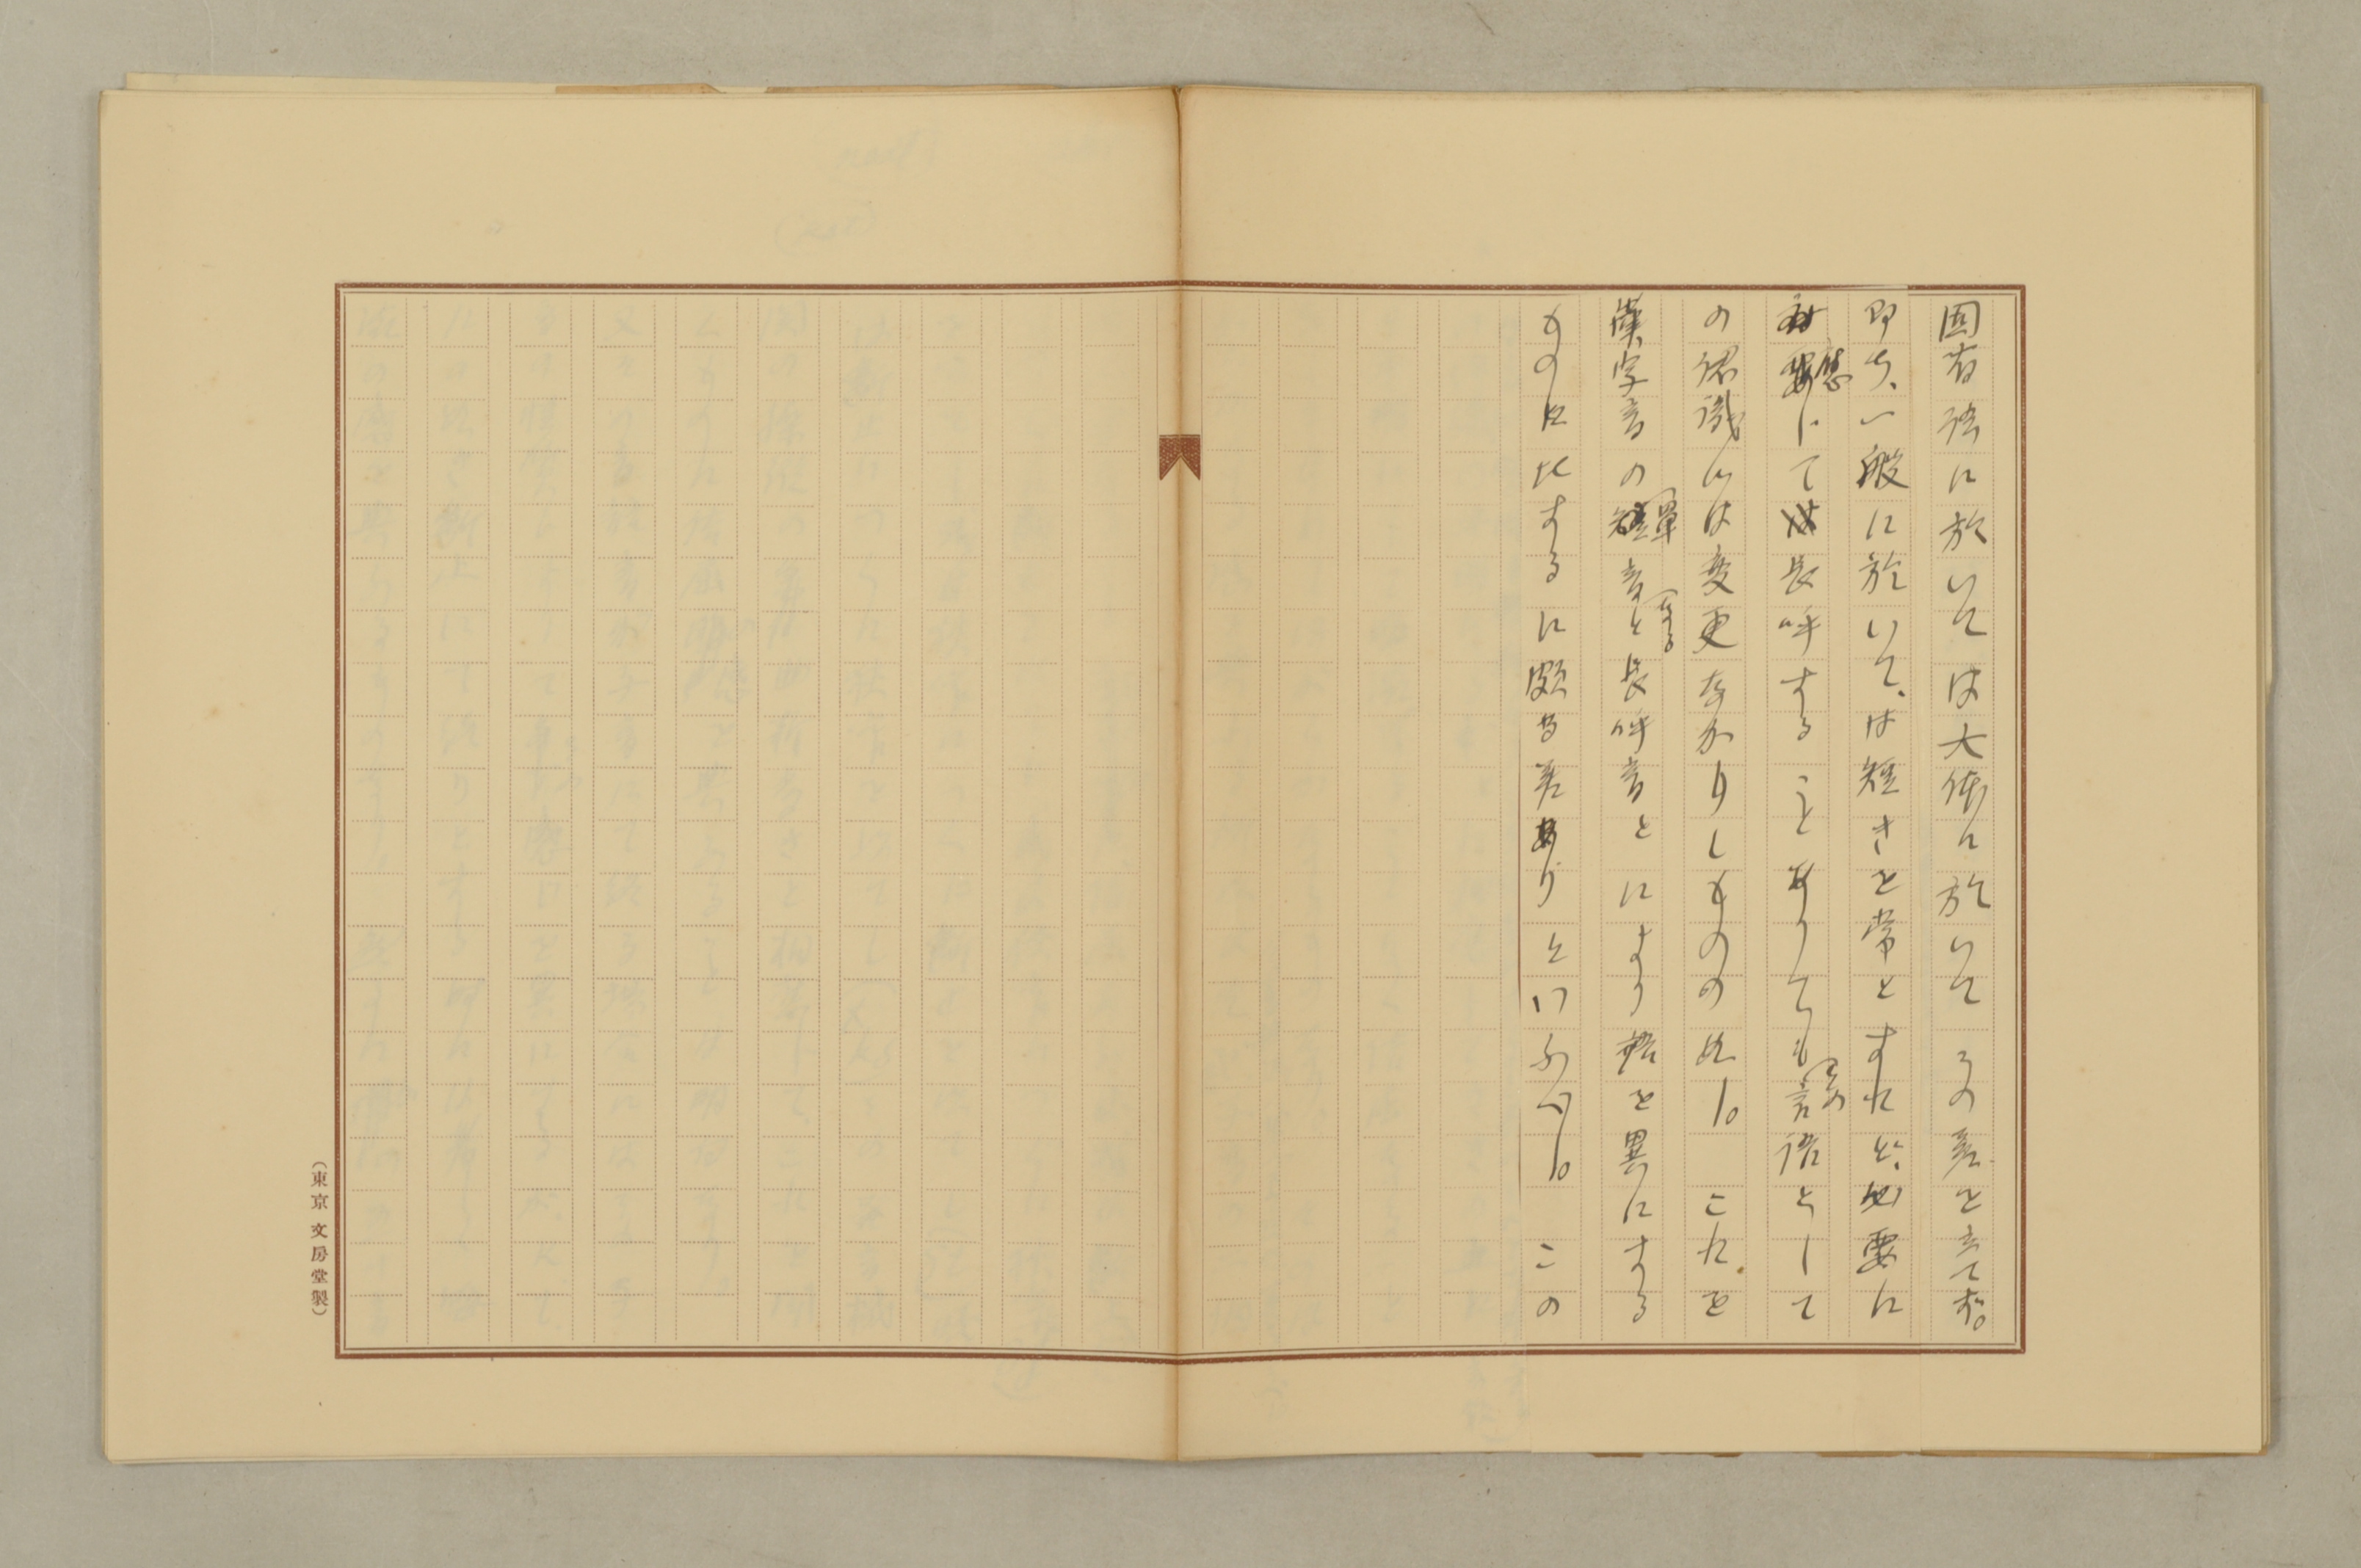 固有語に於いては大体に於いてその差を立てず。
即ち、一般に於いて、は短きを常とすれど、必要に
應じては長呼することありても言語としての
の認識には変更なかりしものの如し。これを
漢字音の單音なると長呼音とにより語を異にする
ものに比するに頗る差ありといふべし。この
(東京 文房堂製)